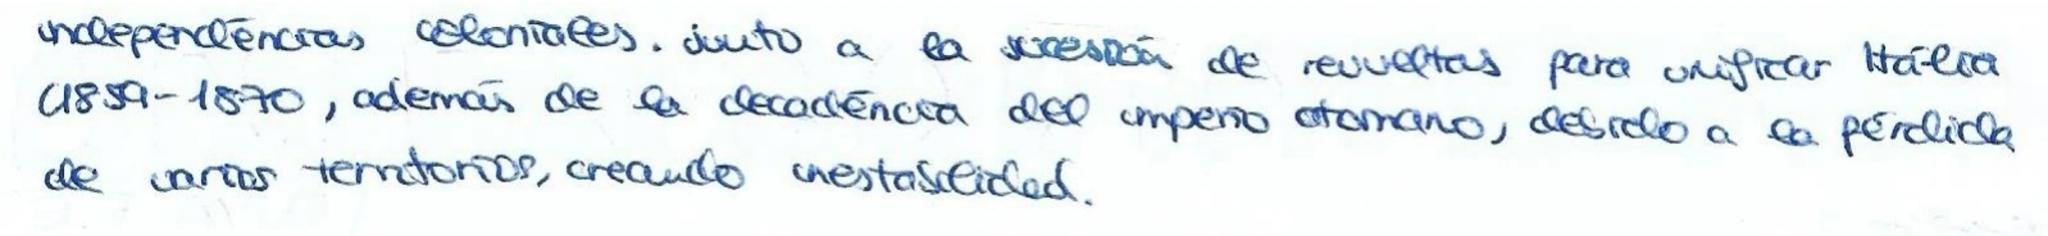 independéncias coloniales. junto a la sucesión de revueltas para unificar Itália
(1859-1870, además de la decadéncia del imperio otomano, debido a la pérdida
de varios territorios, creando inestabilidad.